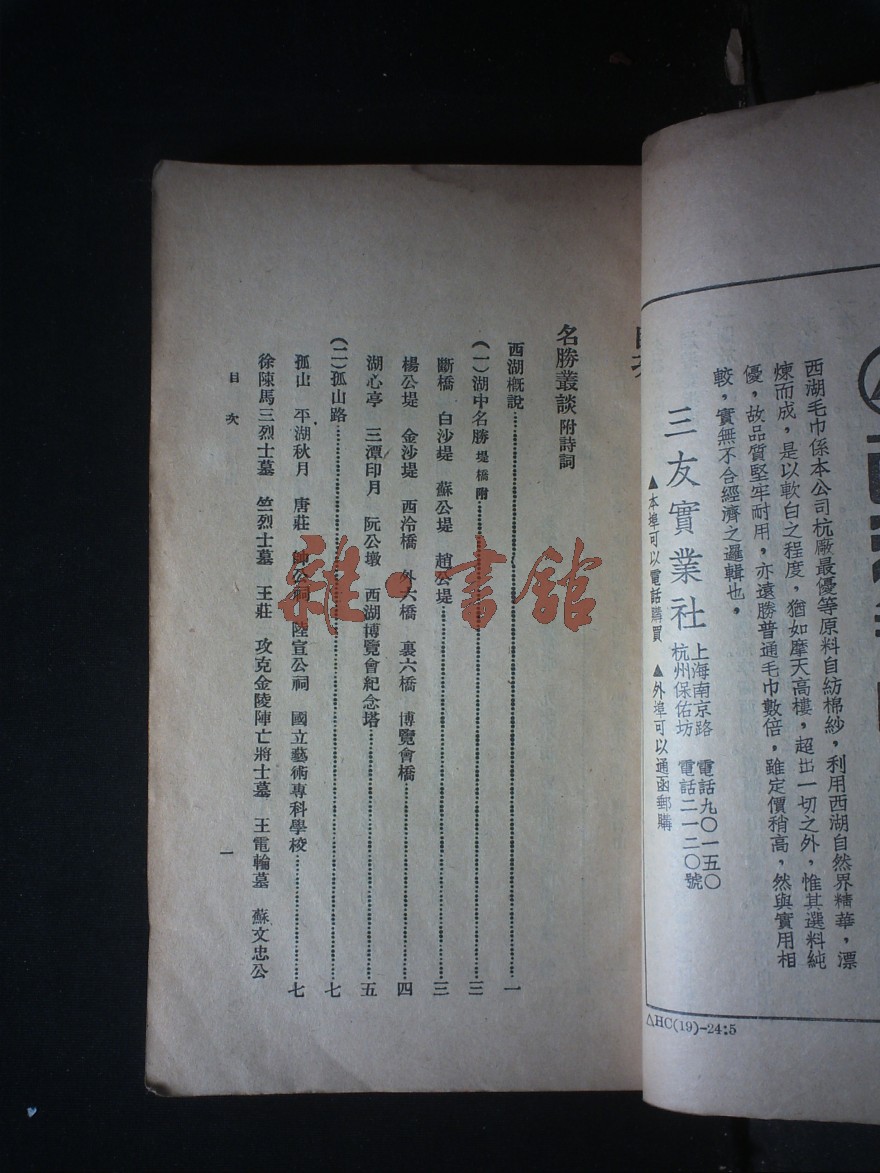 西湖毛巾係本公司杭廠最優等原料自紡棉紗，利用西湖自然界精華，漂
煉而成，是以軟白之程度，猶如摩天高樓，超出一切之外，惟其選料純
優，故品質堅牢耐用，亦遠勝普通毛巾數倍，雖定價稍高，然與實用相
較，實無不合經濟之邏輯也，
三友實業社
上海南京路 電話九〇一五〇
杭州保佑坊 電話二一二〇號
▲本埠可以電話購買 ▲外埠可以通函郵購
△HC(19)-24:5
名勝叢談 附詩詞
西湖概說……一
（一）湖中名勝 堤橋附……三
斷橋 白沙堤 蘇公堤 趙公堤……三
楊公堤 金沙堤 西泠橋 外六橋 裏六橋 博覽會橋……四
湖心亭 三潭印月 阮公墩 西湖博覽會紀念塔……五
（二）孤山路……七
孤山 平湖秋月 唐莊 公祠 陸宣公祠 國立藝術專科學校……七
徐陳馬三烈士墓 竺烈士墓 王莊 攻克金陵陣亡將士墓 王電輪墓 蘇文忠公
目次
一
雜·書館